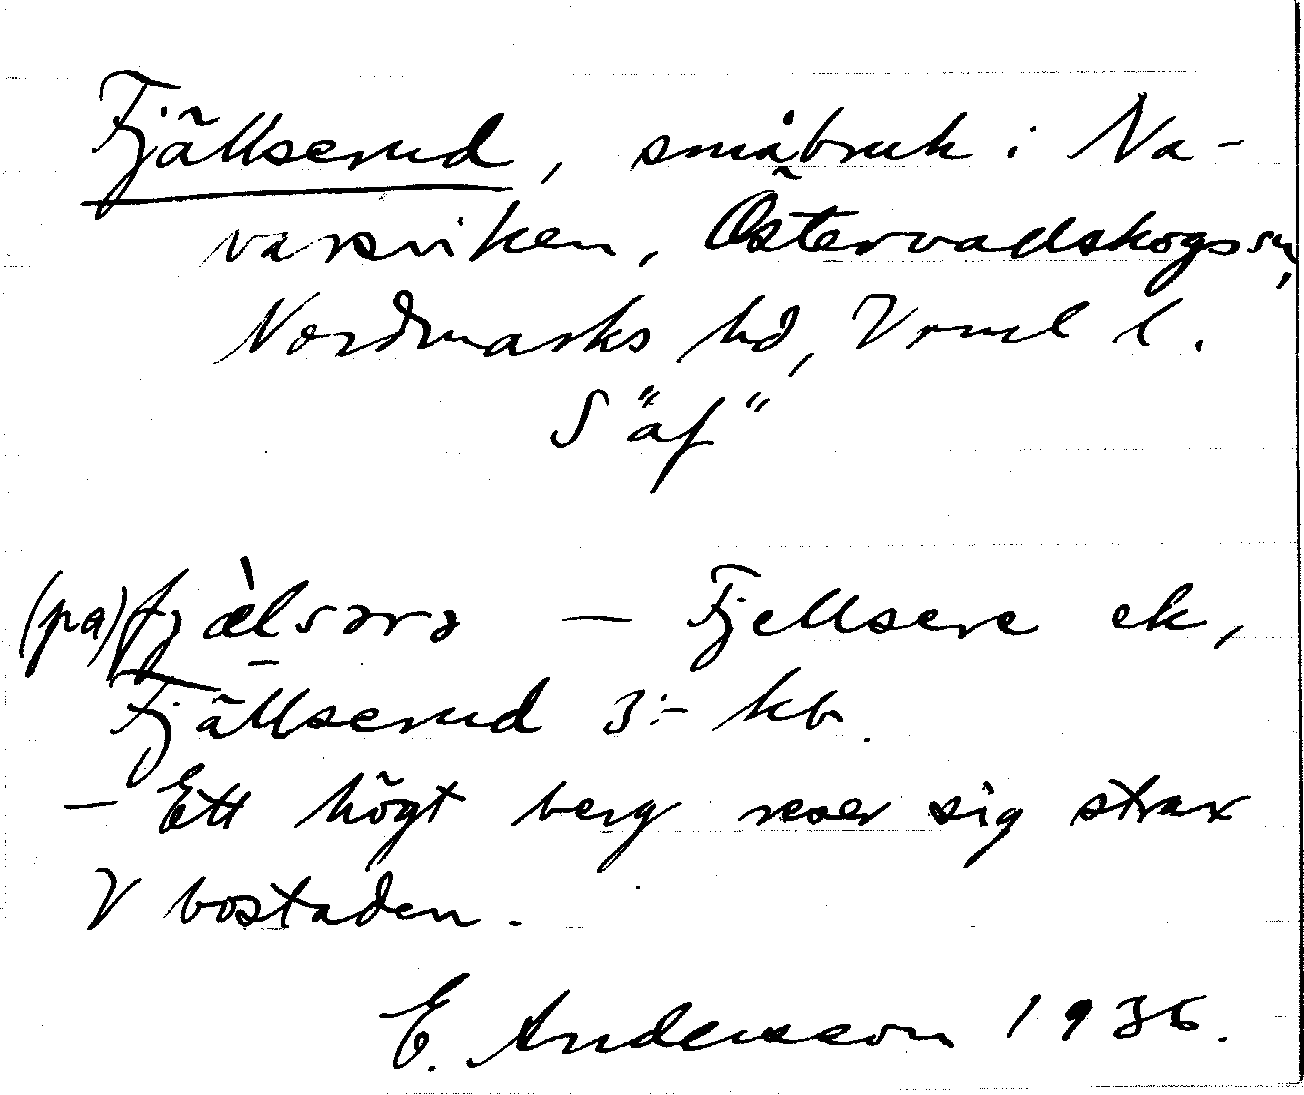 Fjällserud, småbruk i Na-
varsviken, Östervallskogs sn,
Nordmarks hd, Vrml l.
S "äf"
(pa) fjæ̀lsərə — Fjellsere ek,
Fjällserud 3:- kb.
— Ett högt berg reser sig strax
V bostaden.
E. Andersson 1936.